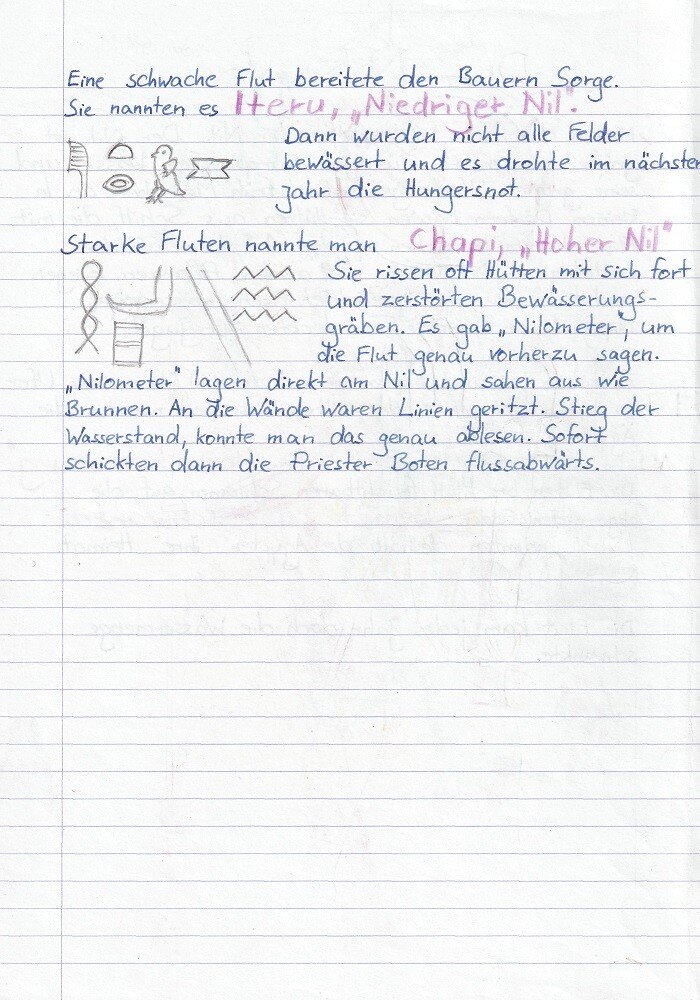 Eine schwache Flut bereitete den Bauern Sorge.
Sie nannten es Iteru, „Niedriger Nil".
Dann wurden nicht alle Felder
bewässert und es drohte im nächsten
Jahr die Hungersnot.
Starke Fluten nannte man Chapi, „Hoher Nil"
Sie rissen oft Hütten mit sich fort
und zerstörten Bewässerungs-
gräben. Es gab „Nilometer", um
die Flut genau vorherzu sagen.
„Nilometer" lagen direkt am Nil und sahen aus wie
Brunnen. An die Wände waren Linien geritzt. Stieg der
Wasserstand, konnte man das genau ablesen. Sofort
schickten dann die Priester Boten flussabwärts.